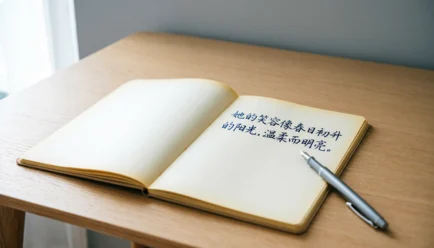 她的笑容像春日初升
的阳光，温柔而明亮。